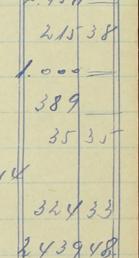 215 38
1.000 —
389 —
35 35
14
324 33
2 439 48